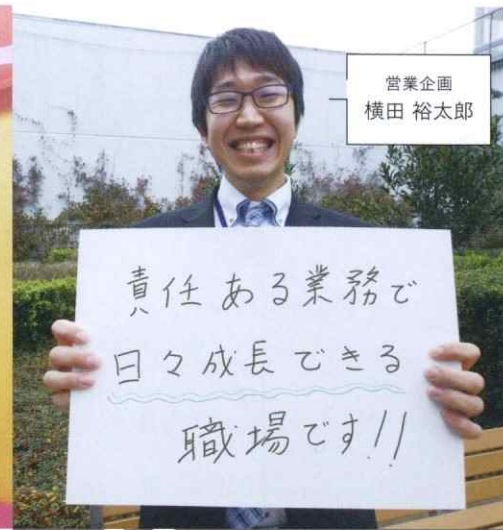 営業企画
横田 裕太郎
責任ある業務で
日々成長できる
職場です!!